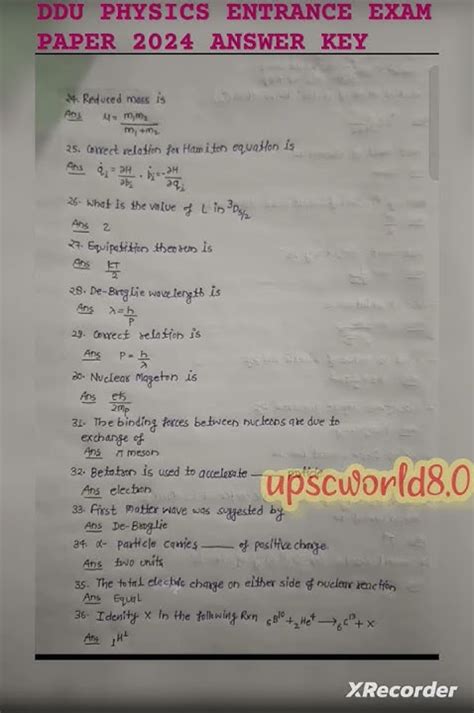 DDU PHYSICS ENTRANCE EXAM
PAPER 2024 ANSWER KEY
24. Reduced mass is
Ans μ = m₁m₂/m₁+m₂
25. Correct relation for Hamilton equation is
Ans q̇ᵢ = ∂H/∂pᵢ , ṗᵢ = -∂H/∂qᵢ
26. What is the value of L in ³D₅/₂
Ans 2
27. Equipatition theorem is
Ans KT/2
28. De-Broglie wavelength is
Ans λ = h/P
29. Correct relation is
Ans P = h/λ
30. Nuclear Mageton is
Ans eħ/2mₚ
31. The binding forces between nucleons are due to
exchange of
Ans π meson
32. Betatron is used to accelerate ____
upscworld8.0
Ans electron
33. First matter wave was suggested by
Ans De-Broglie
34. α- Particle carries ____ of positive charge.
Ans two units
35. The total electric charge on either side of nuclear reaction
Ans Equal
36. Idenity X in the following Rxn ₆B¹⁰ + ₂He⁴ → ₆C¹³ + X
Ans ₁H¹
XRecorder